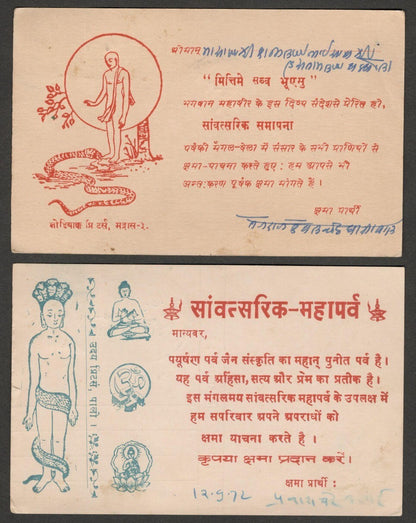 श्रीमान्
"मित्तिमे सव्व भूएसु"
भगवान महावीर के इस दिव्य संदेश से प्रेरित हो,
सांवत्सरिक समापना
पर्व की मंगल-वेला में संसार के सभी प्राणियों से
क्षमा-याचना करते हुए; हम आपसे भी
अन्तःकरण पूर्वक क्षमा माँगते हैं।
क्षमा प्रार्थी
प्रिंटर्स, मद्रास-३.
सांवत्सरिक-महापर्व
मान्यवर,
पयूर्षण पर्व जैन संस्कृति का महान् पुनीत पर्व है।
यह पर्व अहिंसा, सत्य और प्रेम का प्रतीक है।
इस मंगलमय सांवत्सरिक महापर्व के उपलक्ष में
हम सपरिवार अपने अपराधों को
क्षमा याचना करते है।
कृपया क्षमा प्रदान करें।
क्षमा प्रार्थी :
12-9-72